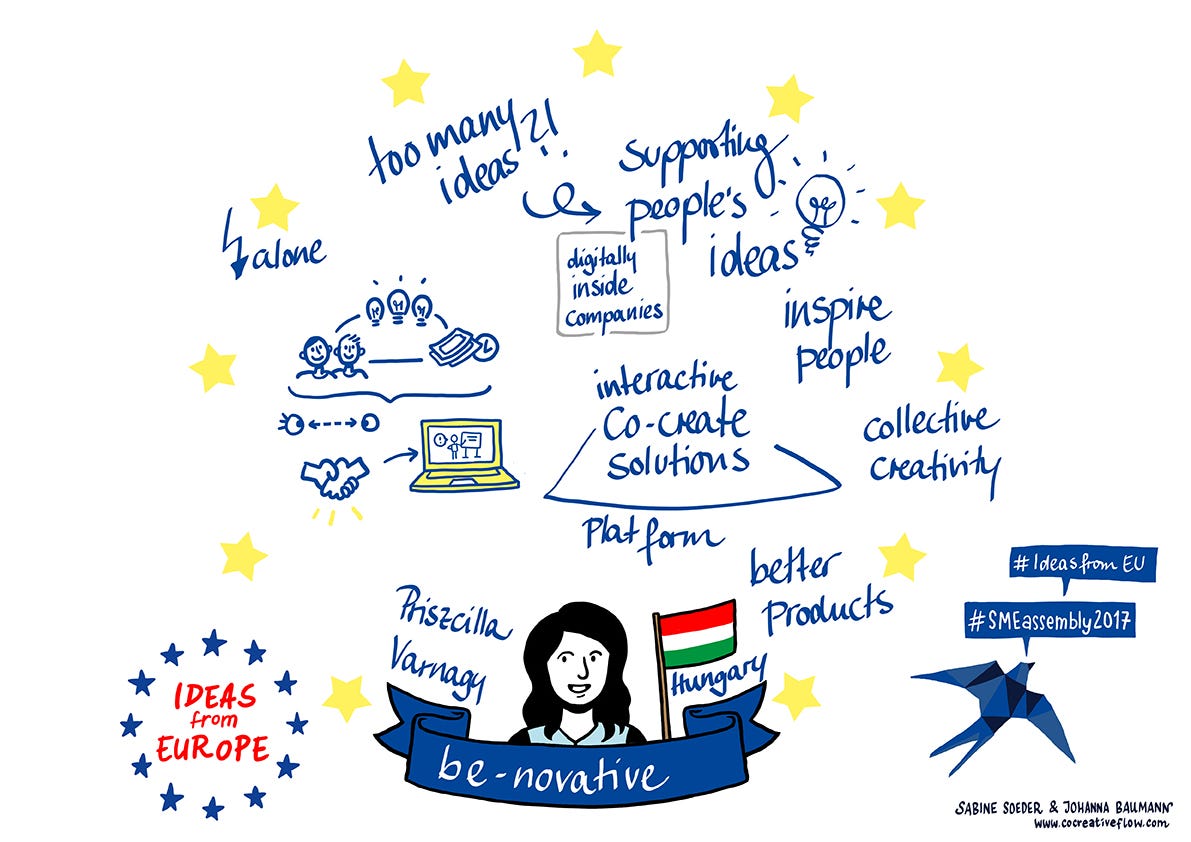 too many
ideas ?!
supporting
people's
ideas
alone
digitally
inside
companies
inspire
people
interactive
Co-create
solutions
collective
creativity
Platform
better
Products
Priszcilla
Varnagy
Hungary
be-novative
IDEAS
from
EUROPE
#Ideasfrom EU
#SMEassembly2017
SABINE SOEDER & JOHANNA BAUMANN
www.cocreativeflow.com